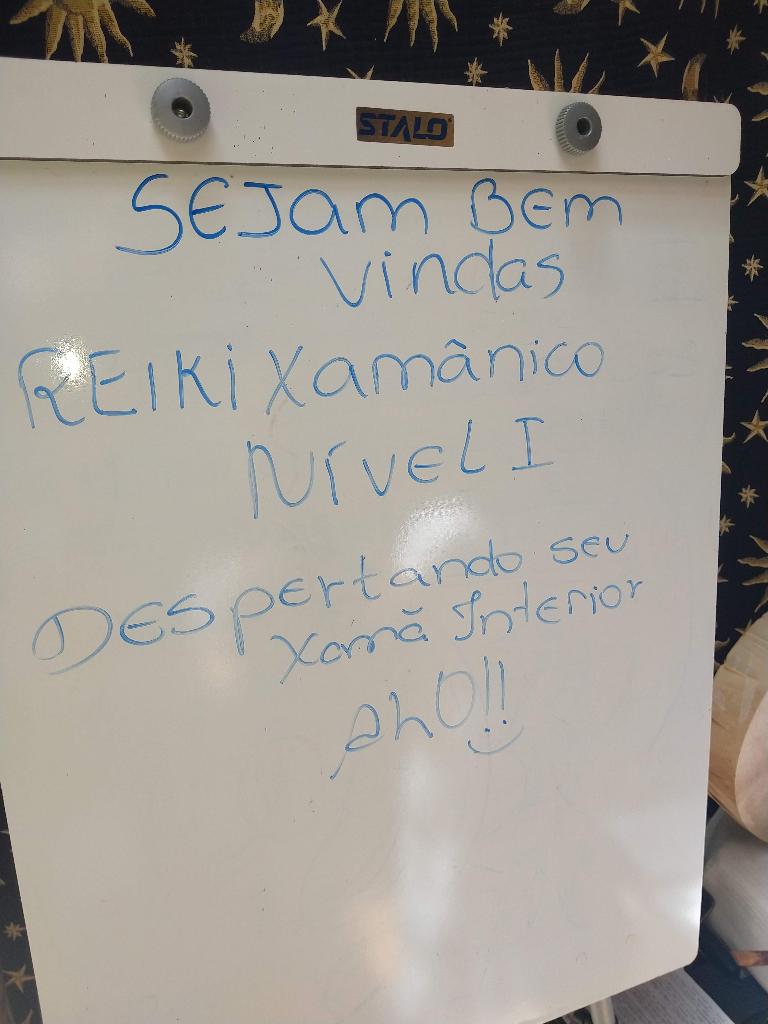 STALO
SEJam BEm
vindas
REIKi Xamânico
Nível I
DESpErtando seu
Xamã InTErior
AhO!!